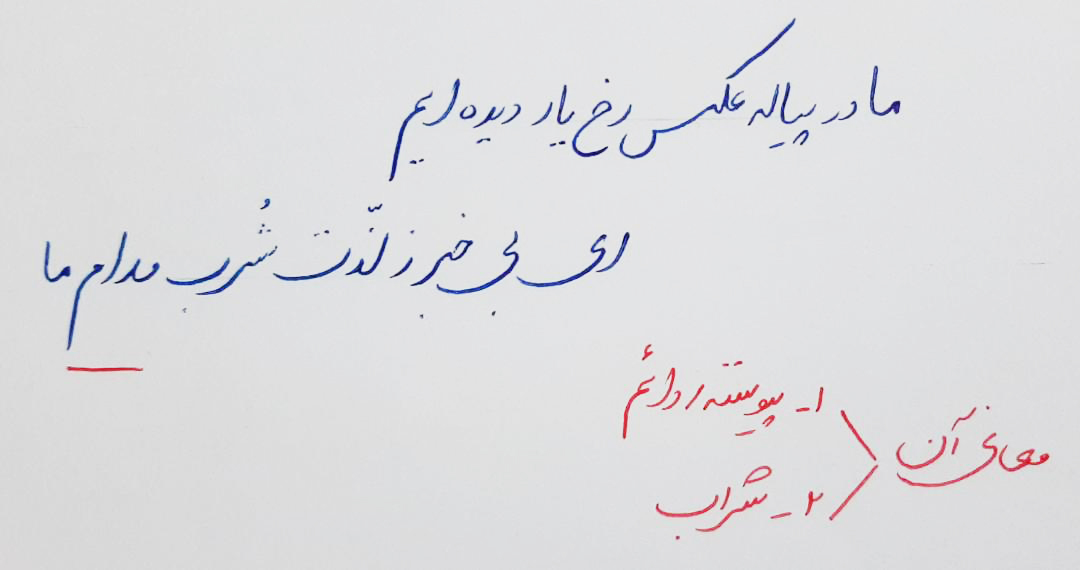 ما در پیاله عکس رخ یار دیده ایم
ای بی خبر ز لذّت شُرب مدام ما
معانی آن
۱- پیوسته، دائم
۲- شراب